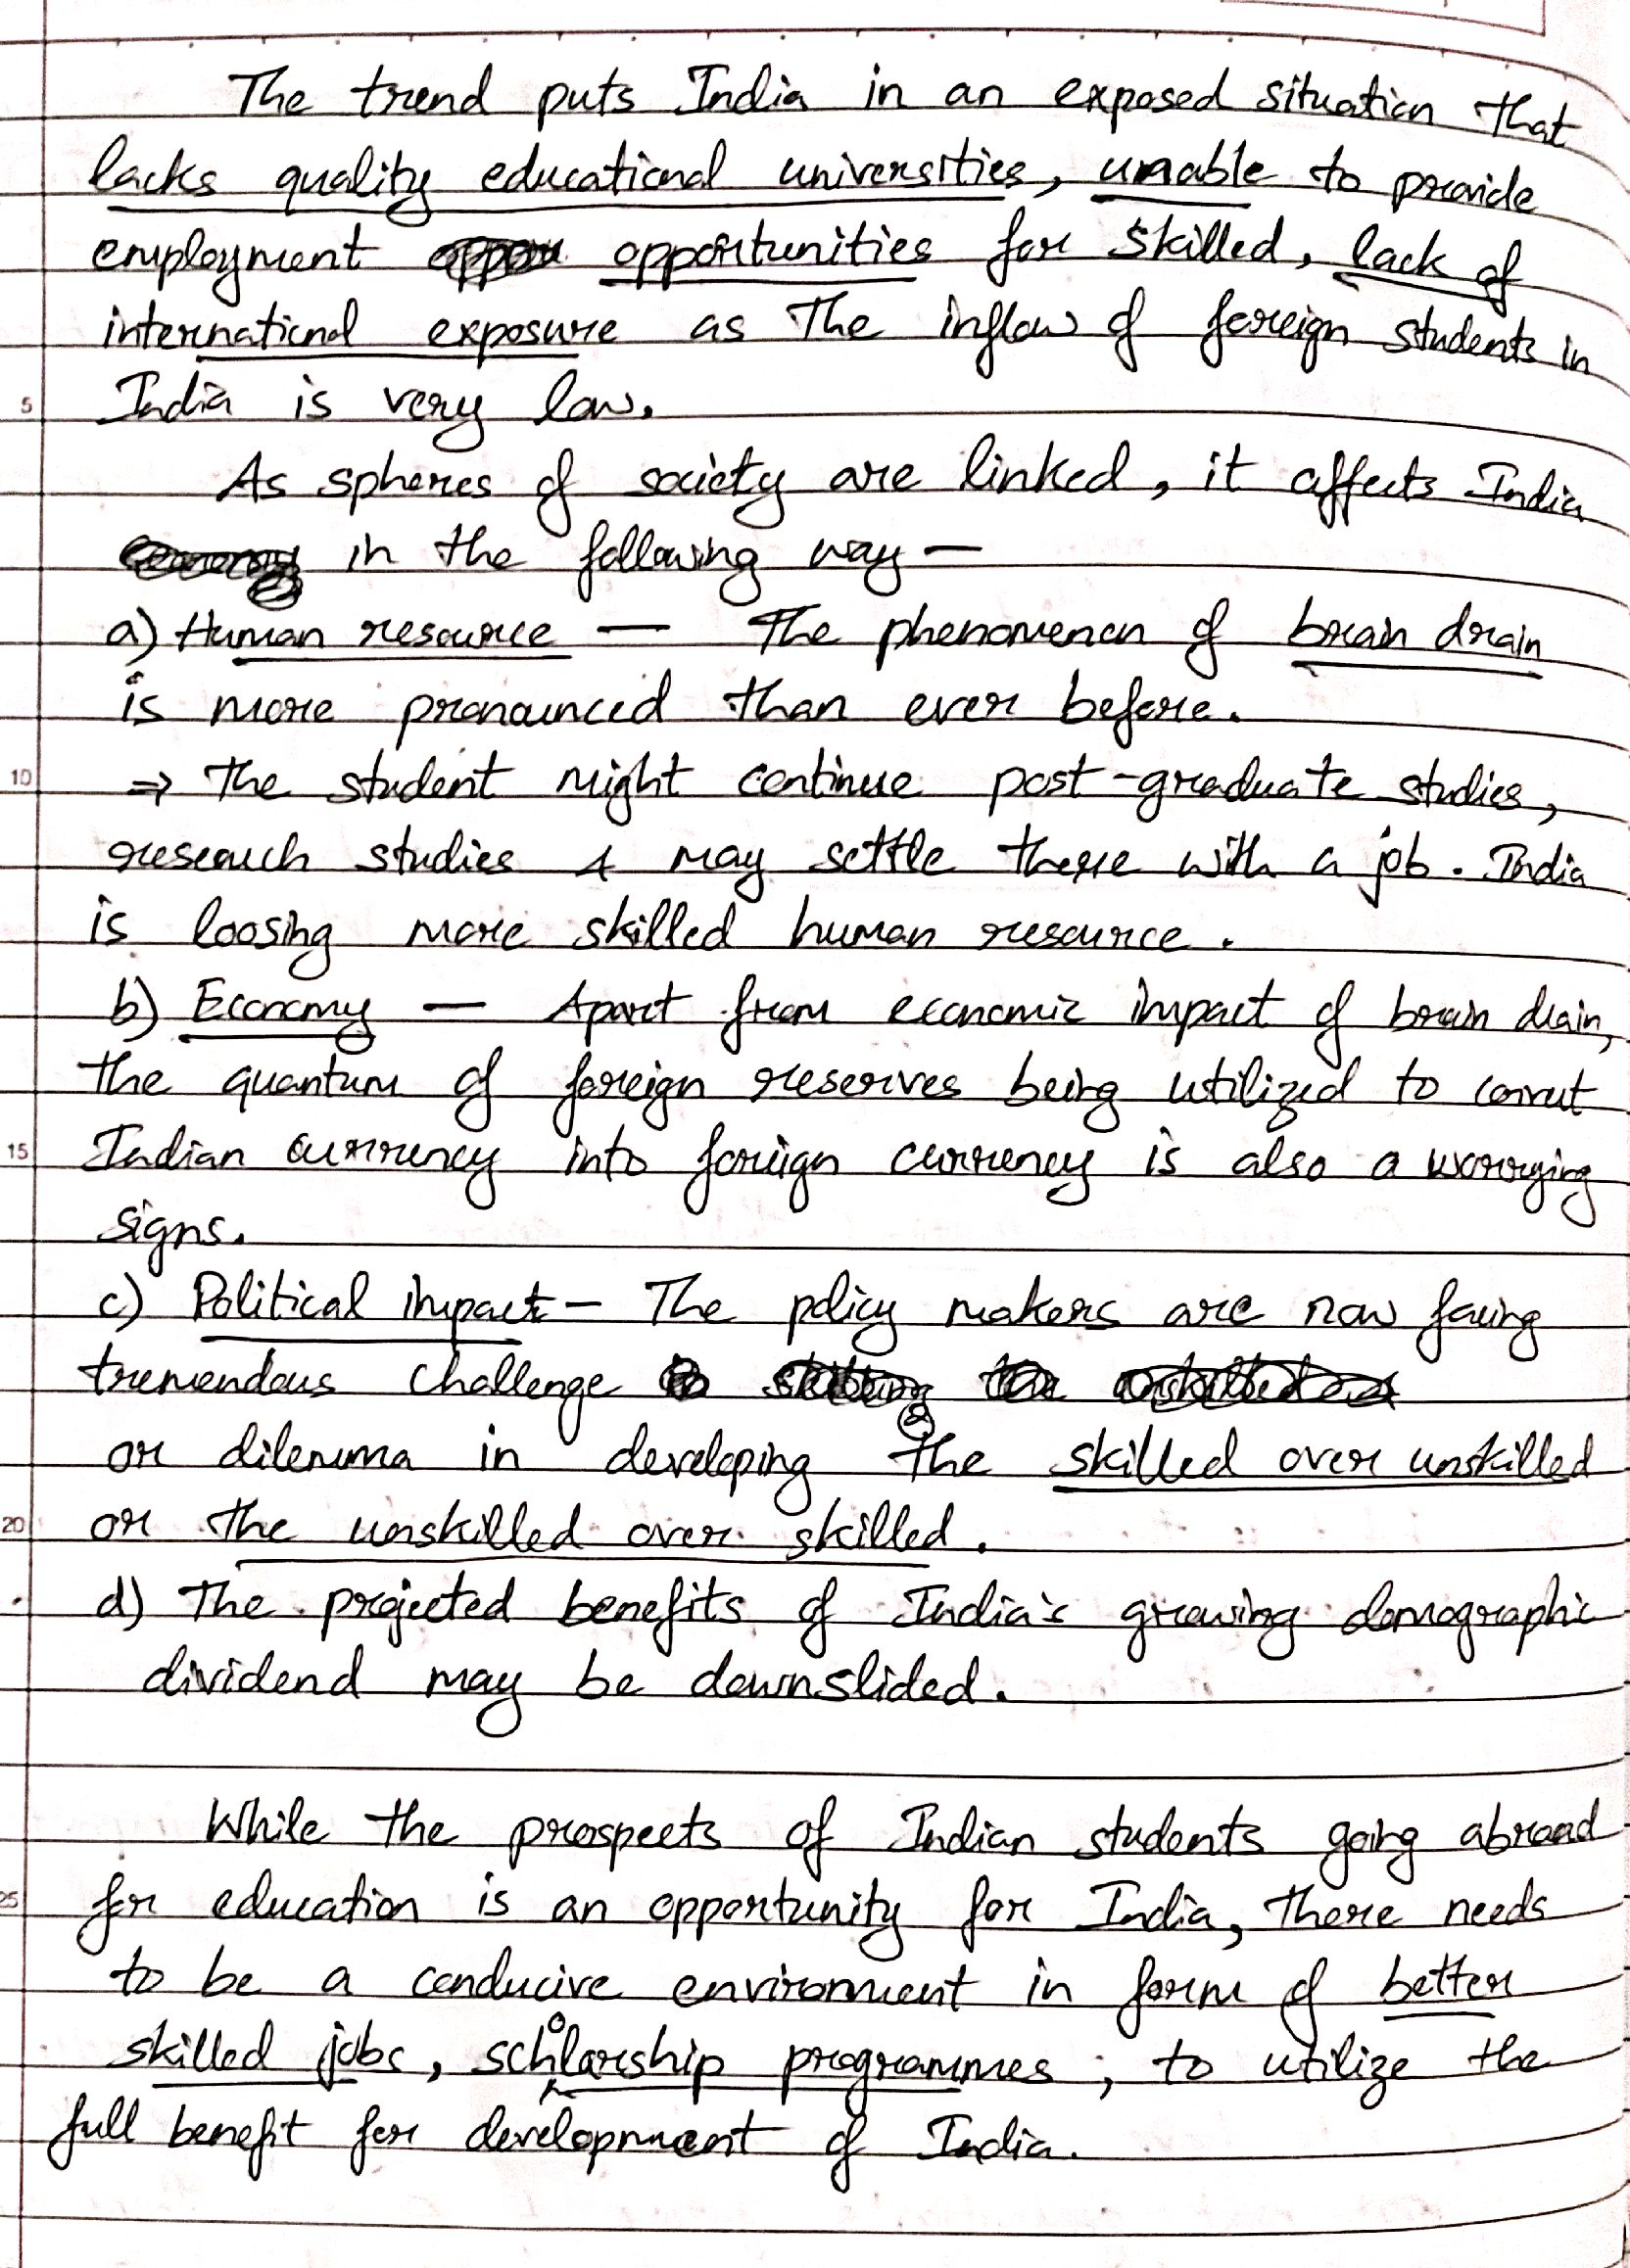 The trend puts India in an exposed situation that
lacks quality educational universities, unable to provide
employment opportunities for skilled, lack of
international exposure as the inflow of foreign students in
5 India is very low.
As spheres of society are linked, it affects India
in the following way —
a) Human resource — The phenomenon of brain drain
is more pronounced than ever before.
10 ⇒ The student might continue post-graduate studies,
research studies & may settle there with a job. India
is loosing more skilled human resource.
b) Economy — Apart from economic impact of brain drain,
the quantum of foreign reserves being utilized to
15 Indian currency into foreign currency is also a worrying
signs.
c) Political impact – The policy makers are now facing
tremendous challenge
or dilemma in developing the skilled over unskilled
20 or the unskilled over skilled.
d) The projected benefits of India's growing demographic
dividend may be downslided.
While the prospects of Indian students going abroad
25 for education is an opportunity for India, there needs
to be a conducive environment in form of better
skilled jobs, scholarship programmes; to utilize the
full benefit for development of India.